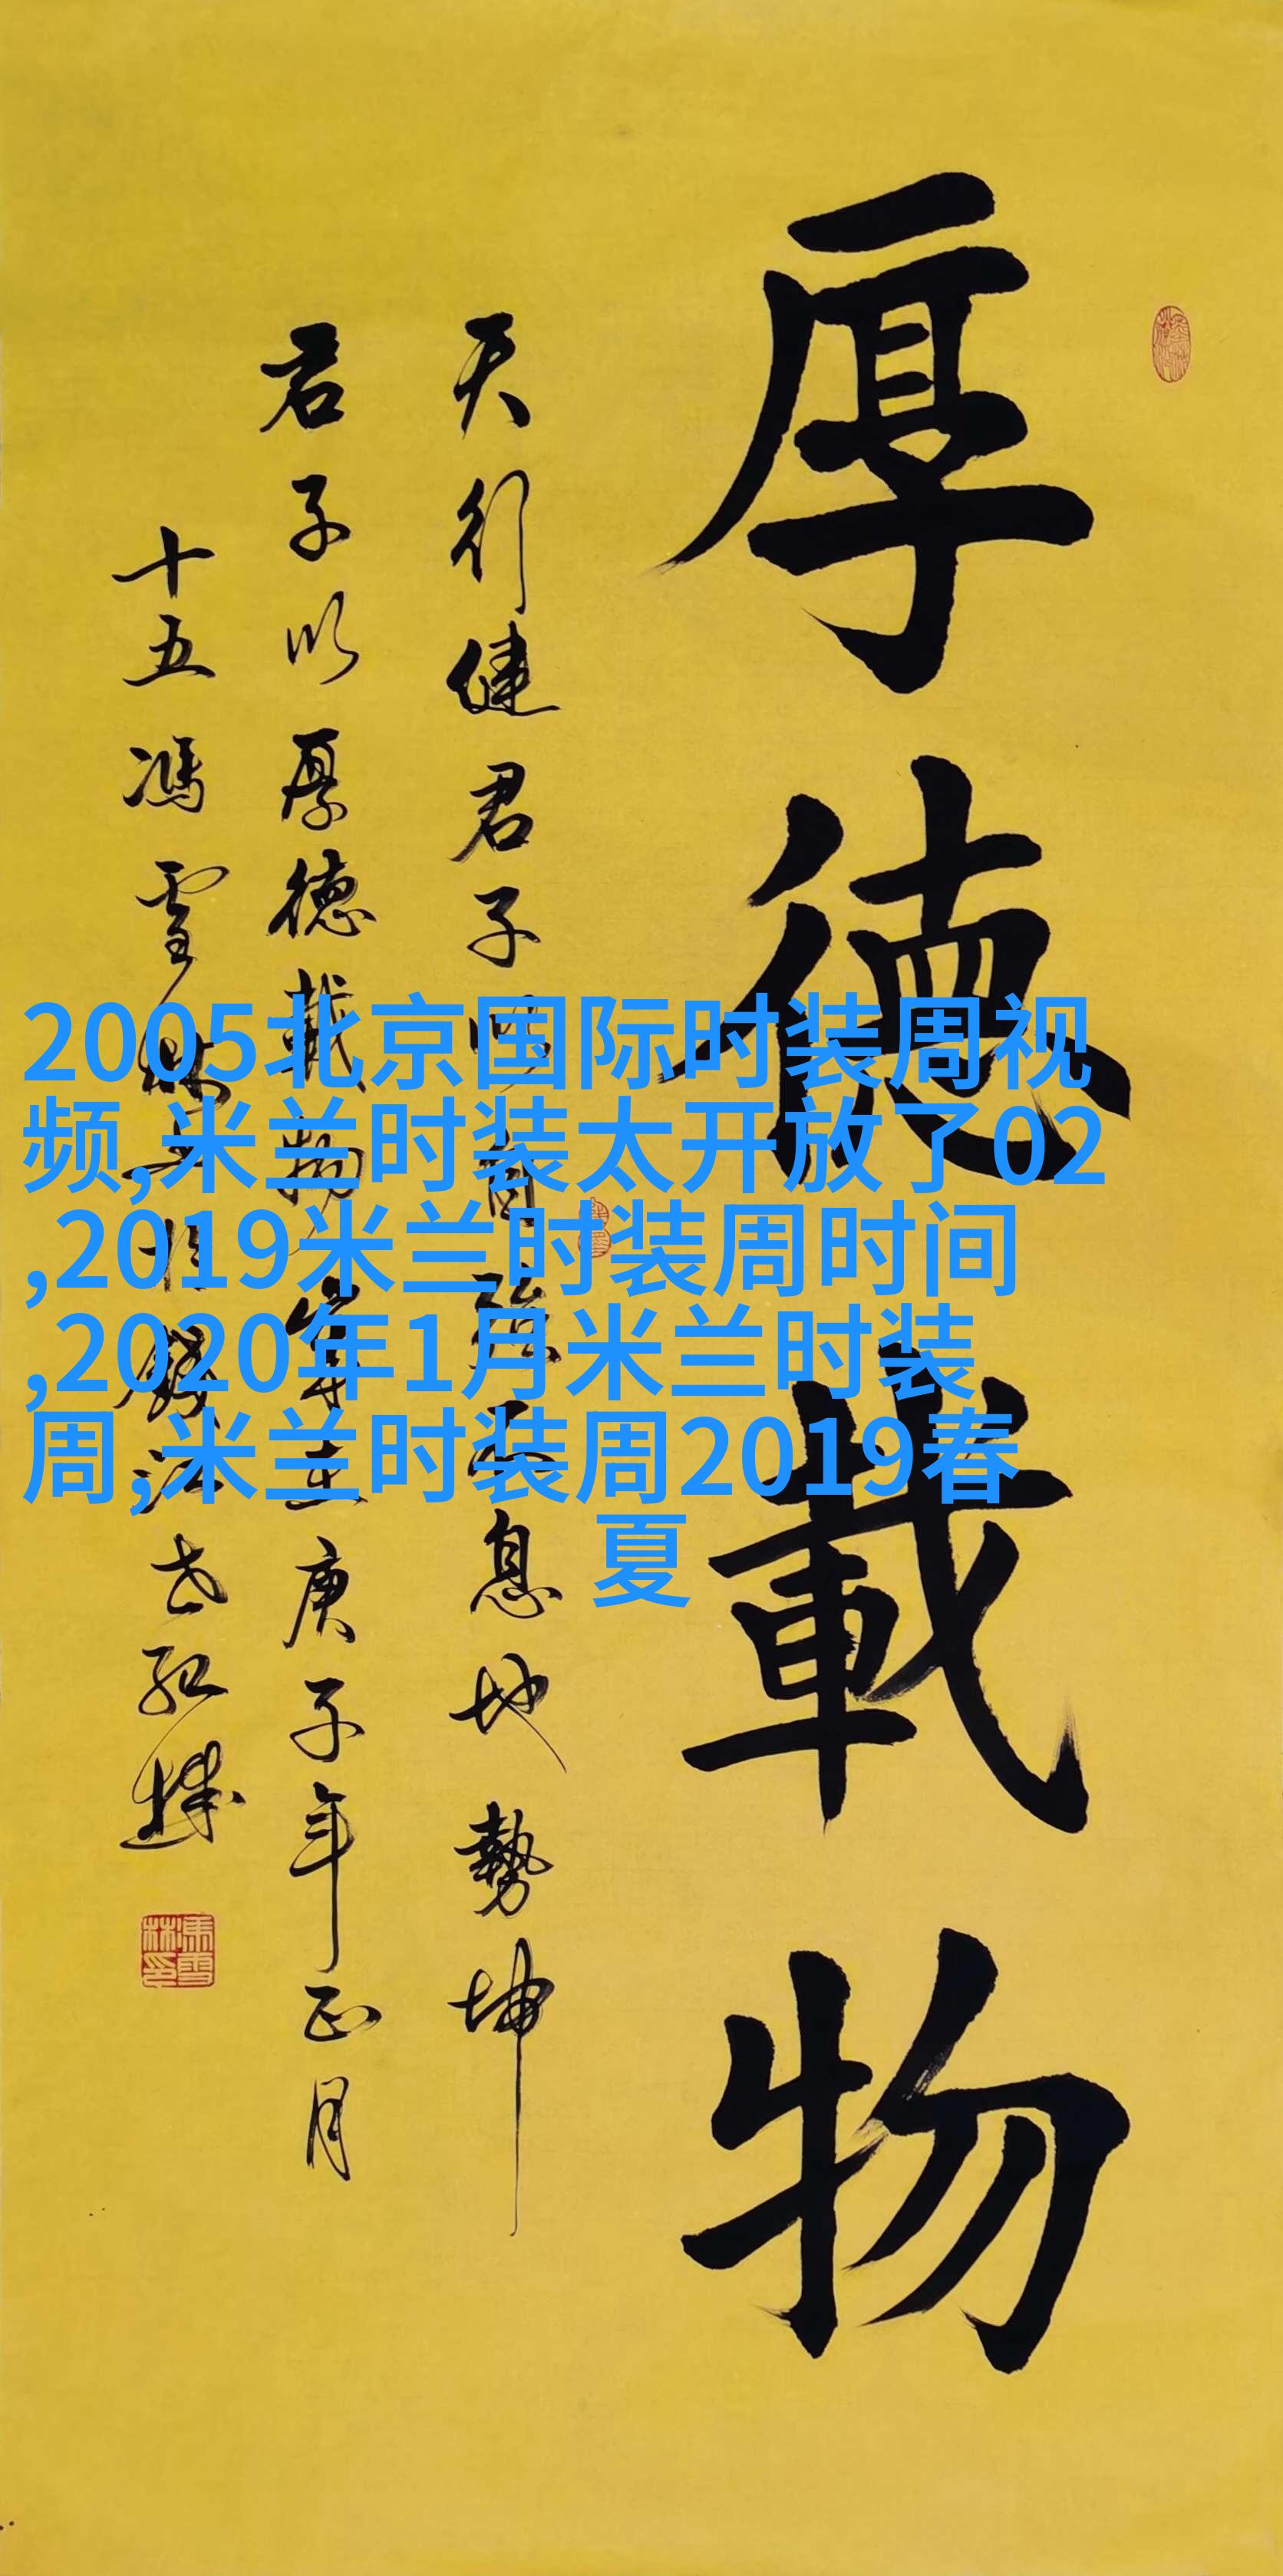 厚德載物
天行健君子以自強不息地勢坤
君子以厚德載物
庚子年正月
十五馮雪林
2005北京国际时装周视
频,米兰时装太开放了02
,2019米兰时装周时间
,2020年1月米兰时装
周,米兰时装周2019春
夏
馮雪林印